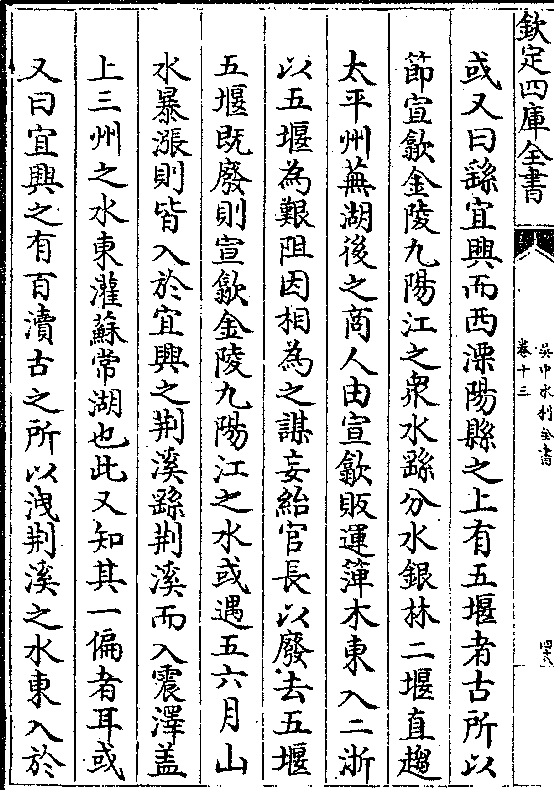 欽定四庫全書
吳中水利全書
卷十三
四八
或又曰繇宜興而西溧陽縣之上有五堰者古所以
節宣歙金陵九陽江之衆水繇分水銀林二堰直趨
太平州蕪湖後之商人由宣歙販運簰木東入二浙
以五堰為艱阻因相為之謀妄紿官長以廢去五堰
五堰既廢則宣歙金陵九陽江之水或遇五六月山
水暴漲則皆入於宜興之荆溪繇荆溪而入震澤盖
上三州之水東灌蘇常湖也此又知其一偏者耳或
又曰宜興之有百瀆古之所以洩荆溪之水東入於